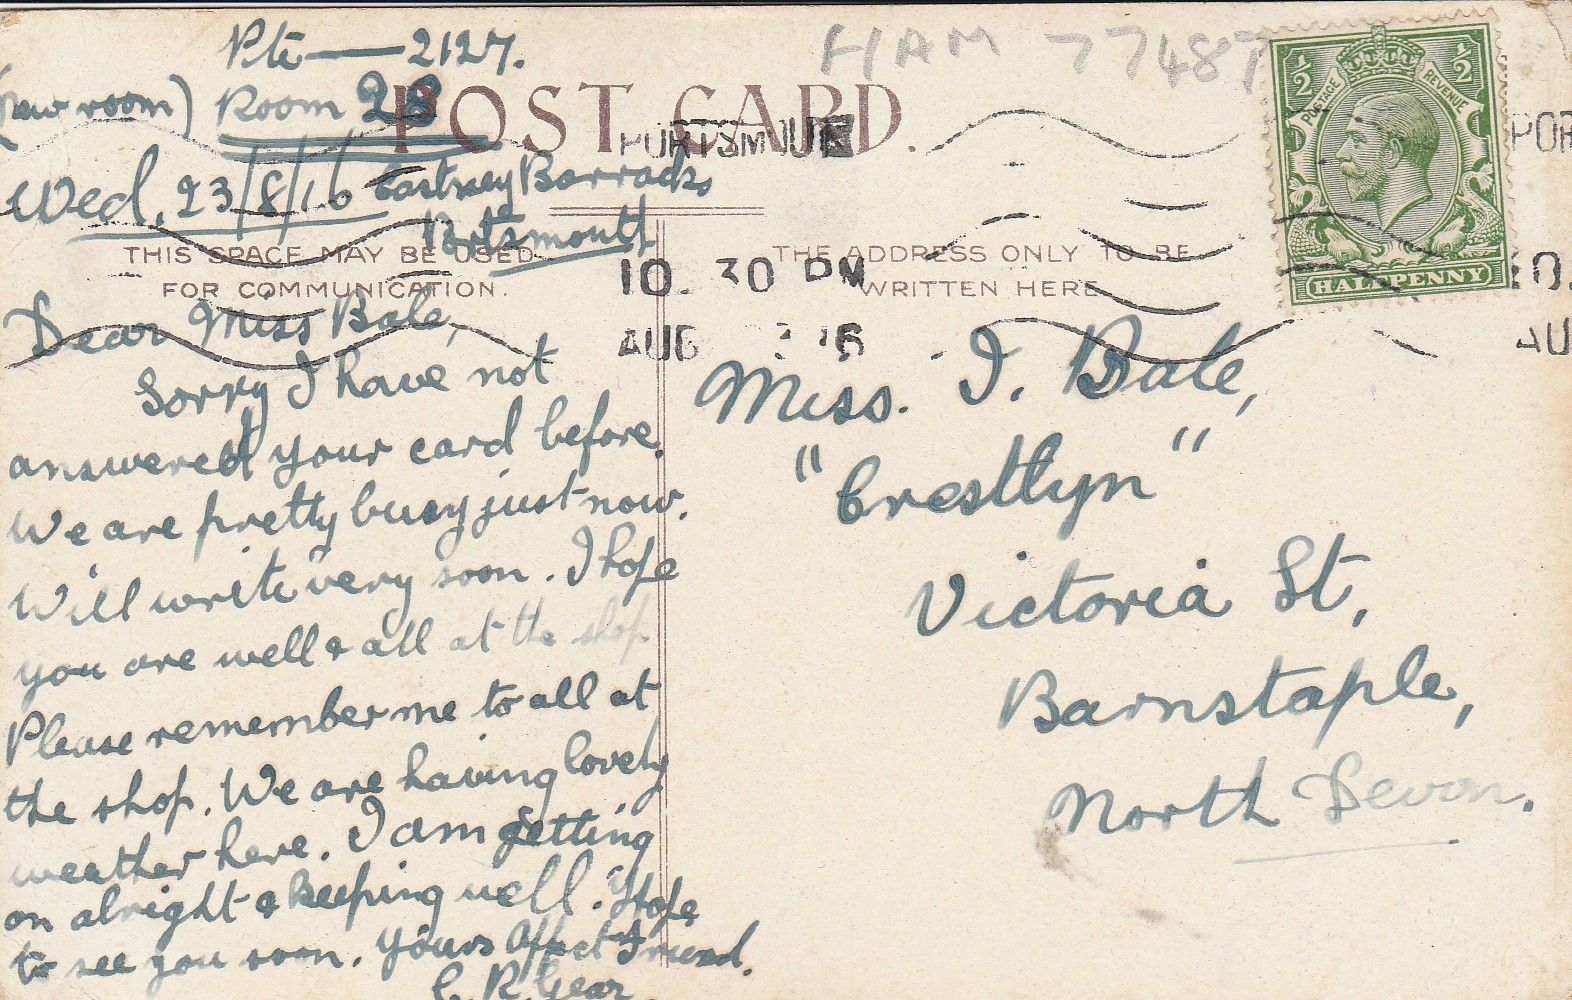 Pte — 2127.
HAM 77487
(new room) Room 28
POST CARD.
PORTSMOUTH
Wed, 23/8/16 Eastney Barracks
Portsmouth
THIS SPACE MAY BE USED
FOR COMMUNICATION.
THE ADDRESS ONLY TO BE
WRITTEN HERE
10. 30 PM
AUG 16
½ ½
POSTAGE REVENUE
HALFPENNY
POR
10.
AU
Dear Miss Bale,
Sorry I have not
answered your card before.
We are pretty busy just now.
Will write very soon. I hope
you are well & all at the shop
Please remember me to all at
the shop. We are having lovely
weather here. I am getting
on alright & keeping well. Hope
to see you soon. Yours Affect Friend.
C. R. Gear
Miss. I. Bale,
"Crestlyn"
Victoria St,
Barnstaple,
North Devon.